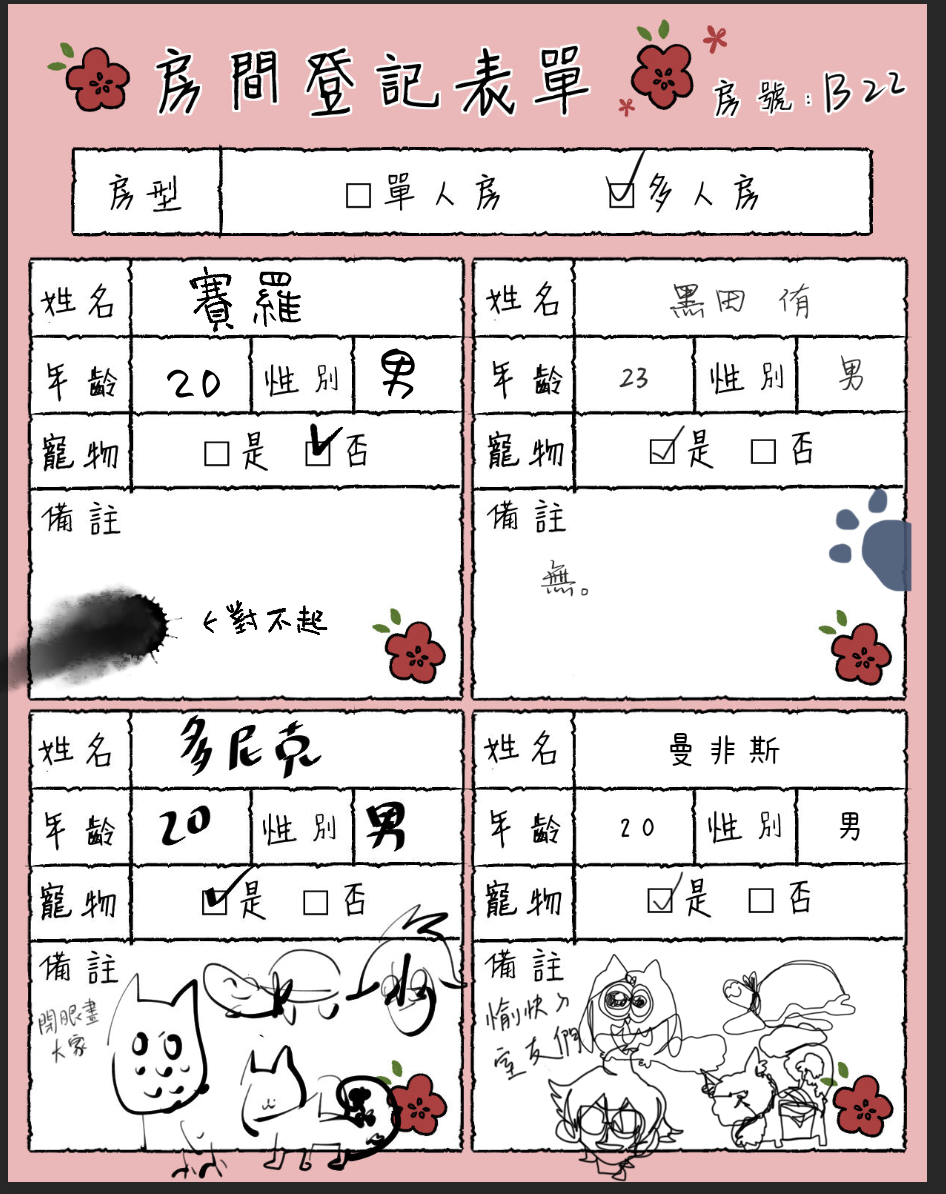 房間登記表單
房號：B22
房型 □單人房 ☑多人房
姓名 賽羅
年齡 20 性別 男
寵物 □是 ☑否
備註
←對不起
姓名 黑田 侑
年齡 23 性別 男
寵物 ☑是 □否
備註
無。
姓名 多尼克
年齡 20 性別 男
寵物 ☑是 □否
備註
閉眼畫
大家
姓名 曼非斯
年齡 20 性別 男
寵物 ☑是 □否
備註
愉快ㄉ
室友們